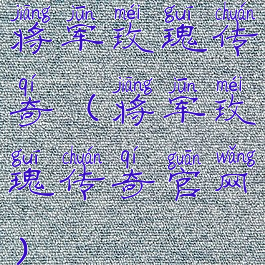 jiāng jūn méi guī chuán
将军玫瑰传
qí jiāng jūn méi
奇(将军玫
guī chuán qí guān wǎng
瑰传奇官网
)